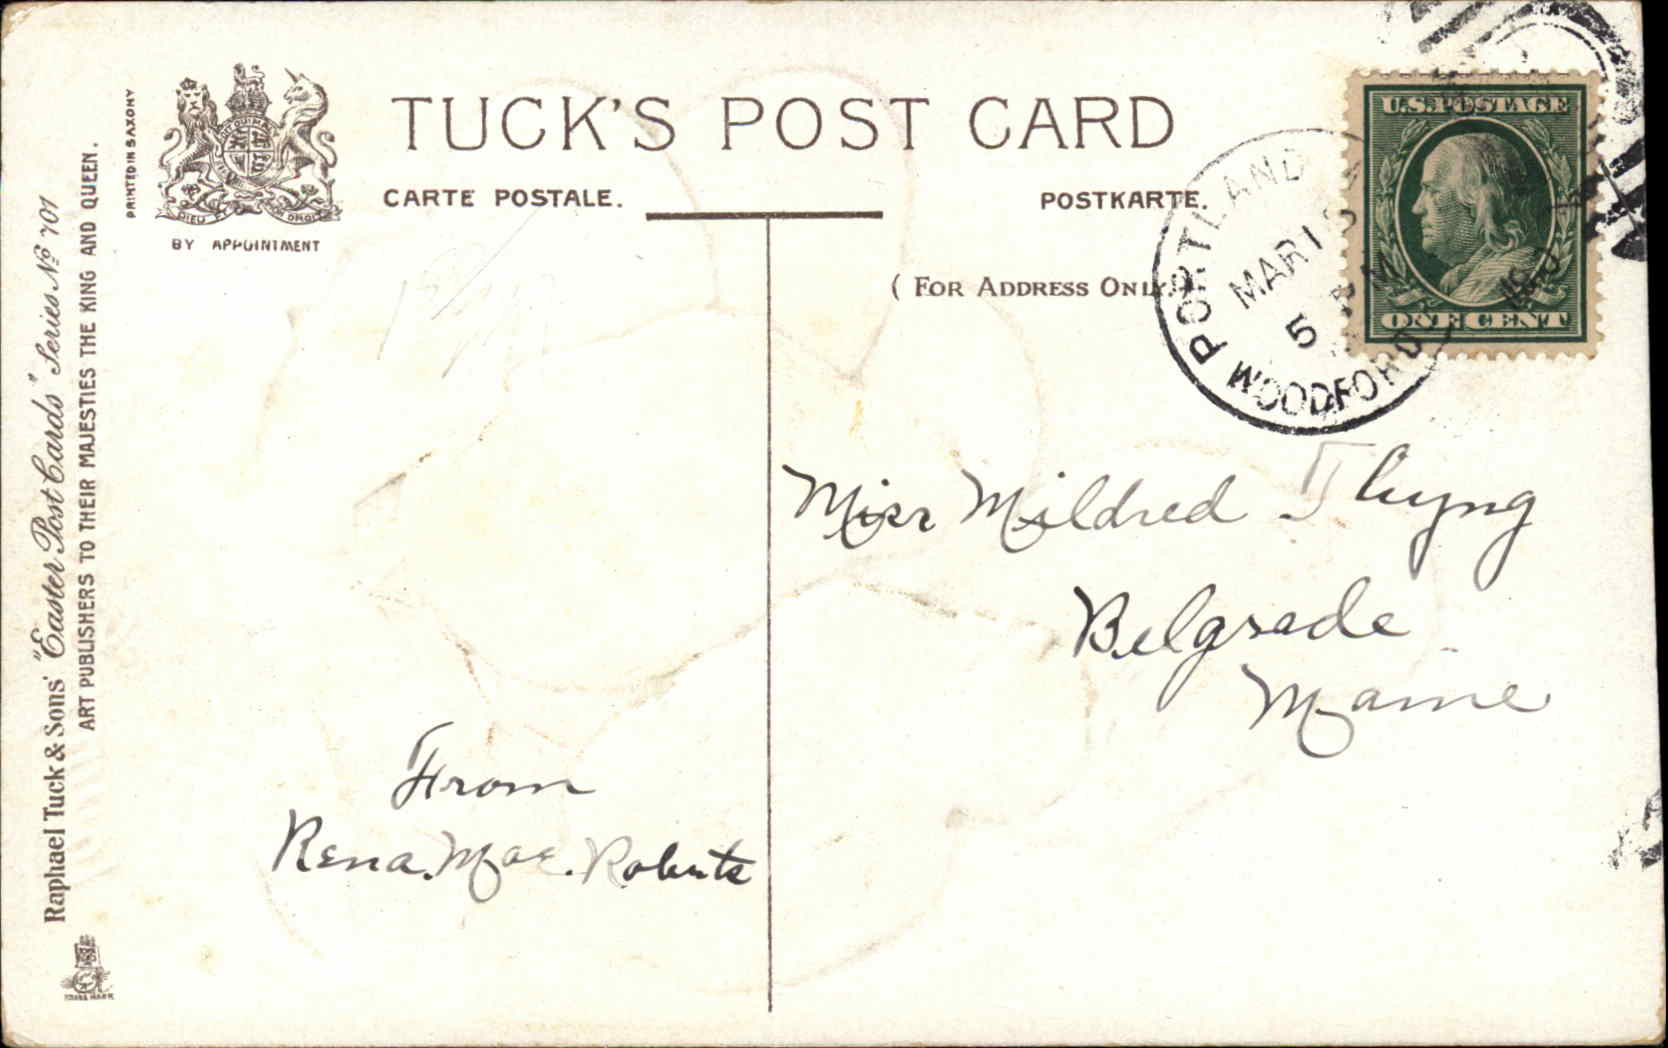 TUCK'S POST CARD
CARTE POSTALE.
POSTKARTE.
(FOR ADDRESS ONLY
PRINTED IN SAXONY
DIEU ET MON DROIT
BY APPOINTMENT
Raphael Tuck & Sons' "Easter Post Cards" Series No 701
ART PUBLISHERS TO THEIR MAJESTIES THE KING AND QUEEN.
TRADE MARK
U.S. POSTAGE
ONE CENT
PORTLAND
MAR 13
5
WOODFORD
Miss Mildred Thyng
Belgrade
Maine
From
Rena. Mae. Roberts